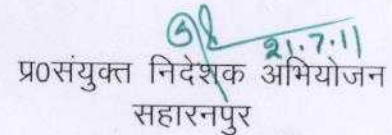 21.7.11
प्र0संयुक्त निदेशक अभियोजन
सहारनपुर